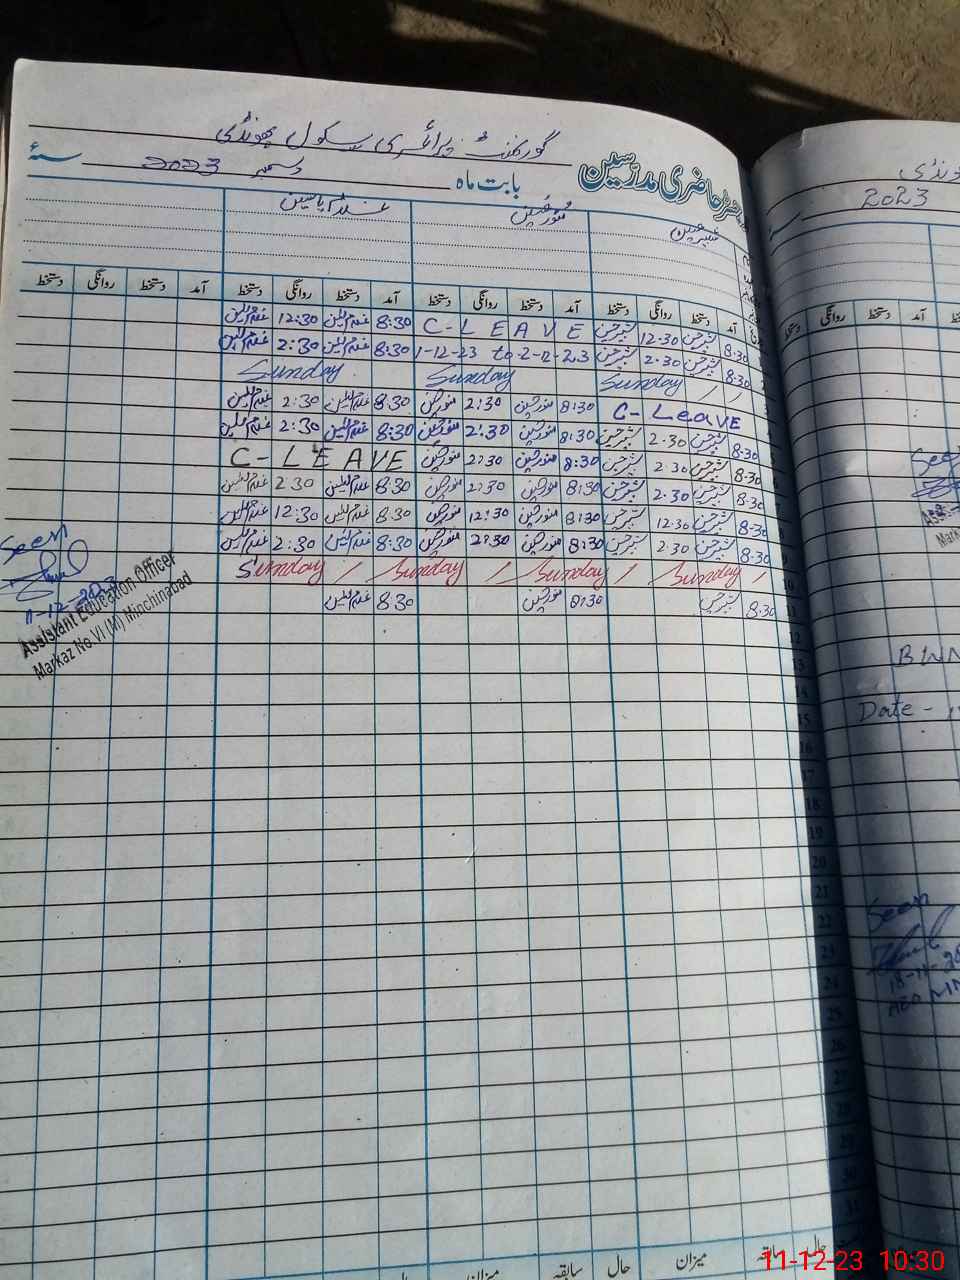 گورنمنٹ پرائمری سکول بھونڈی
رجسٹر حاضری مدرسین بابت ماہ دسمبر 2023 سنہ
شبیر حسین منور حسین غلام یاسین
آمد دستخط روانگی دستخط آمد دستخط روانگی دستخط آمد دستخط روانگی دستخط آمد دستخط روانگی دستخط
8:30 شبیر حسین 12:30 شبیر حسین C-LEAVE 8:30 غلام یاسین 12:30 غلام یاسین
8:30 شبیر حسین 2:30 شبیر حسین 1-12-23 to 2-12-23 8:30 غلام یاسین 2:30 غلام یاسین
Sunday Sunday Sunday
C-Leave 8:30 منور حسین 2:30 منور حسین 8:30 غلام یاسین 2:30 غلام یاسین
8:30 شبیر حسین 2:30 شبیر حسین 8:30 منور حسین 2:30 منور حسین 8:30 غلام یاسین 2:30 غلام یاسین
8:30 شبیر حسین 2:30 شبیر حسین 8:30 منور حسین 2:30 منور حسین C-LEAVE
8:30 شبیر حسین 2:30 شبیر حسین 8:30 منور حسین 2:30 منور حسین 8:30 غلام یاسین 2:30 غلام یاسین
8:30 شبیر حسین 12:30 شبیر حسین 8:30 منور حسین 12:30 منور حسین 8:30 غلام یاسین 12:30 غلام یاسین
9 8:30 شبیر حسین 2:30 شبیر حسین 8:30 منور حسین 2:30 منور حسین 8:30 غلام یاسین 2:30 غلام یاسین
10 Sunday / Sunday / Sunday / Sunday /
11 8:30 شبیر حسین 8:30 منور حسین 8:30 غلام یاسین
12
13
14
15
16
17
18
19
20
21
22
23
24
25
26
27
28
29
30
31
Seen
11-12-2023
Assistant Education Officer
Markaz No.VI (M) Minchinabad
حال سابقہ میزان حال سابقہ میزان حال
2023
آمد دستخط روانگی دستخط
Seen
Date -
Seen
18-11-20
AEO
11-12-23 10:30